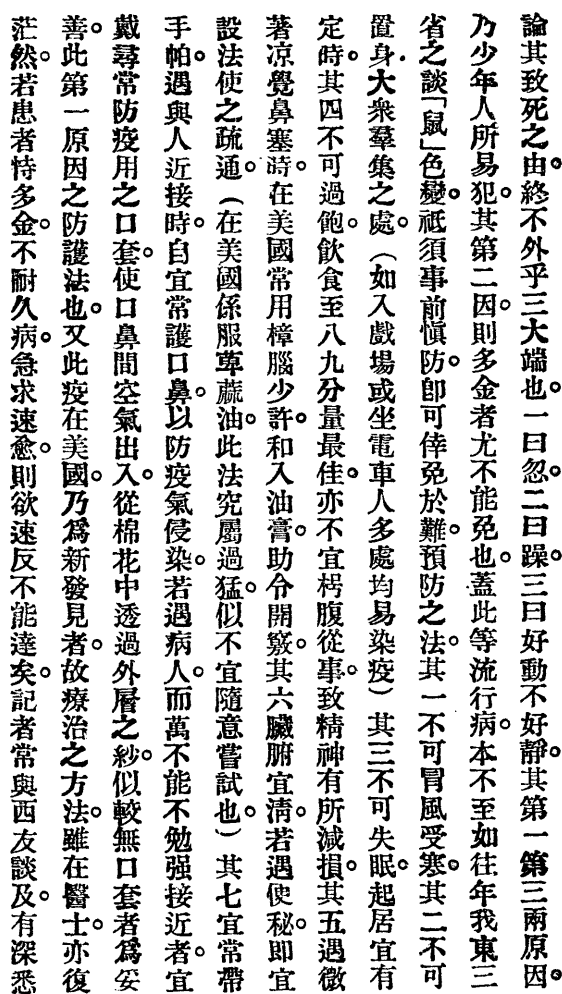 論其致死之由。終不外乎三大端也。一曰忽。二曰躁。三曰好動不好靜。其第一第三兩原因。
乃少年人所易犯。其第二因。則多金者尤不能免也。蓋此等流行病。本不至如往年我東三
省之談「鼠」色變。祇須事前愼防。卽可倖免於難。預防之法。其一不可冒風受寒。其二不可
置身大衆羣集之處。（如入戲場或坐電車人多處均易染疫）其三不可失眠。起居宜有
定時。其四不可過飽。飲食至八九分量最佳。亦不宜枵腹從事。致精神有所減損。其五遇微
著凉覺鼻塞時。在美國常用樟腦少許。和入油膏。助令開竅。其六臟腑宜淸。若遇便秘。卽宜
設法使之疏通。（在美國係服萆蔴油。此法究屬過猛。似不宜隨意嘗試也。）其七宜常帶
手帕。遇與人近接時。自宜常護口鼻。以防疫氣侵染。若遇病人。而萬不能不勉强接近者。宜
戴尋常防疫用之口套。使口鼻間空氣出入。從棉花中透過外層之紗。似較無口套者爲妥
善。此第一原因之防護法也。又此疫在美國。乃爲新發見者。故療治之方法。雖在醫士。亦復
茫然。若患者恃多金。不耐久病。急求速愈。則欲速反不能達矣。記者常與西友談及。有深悉